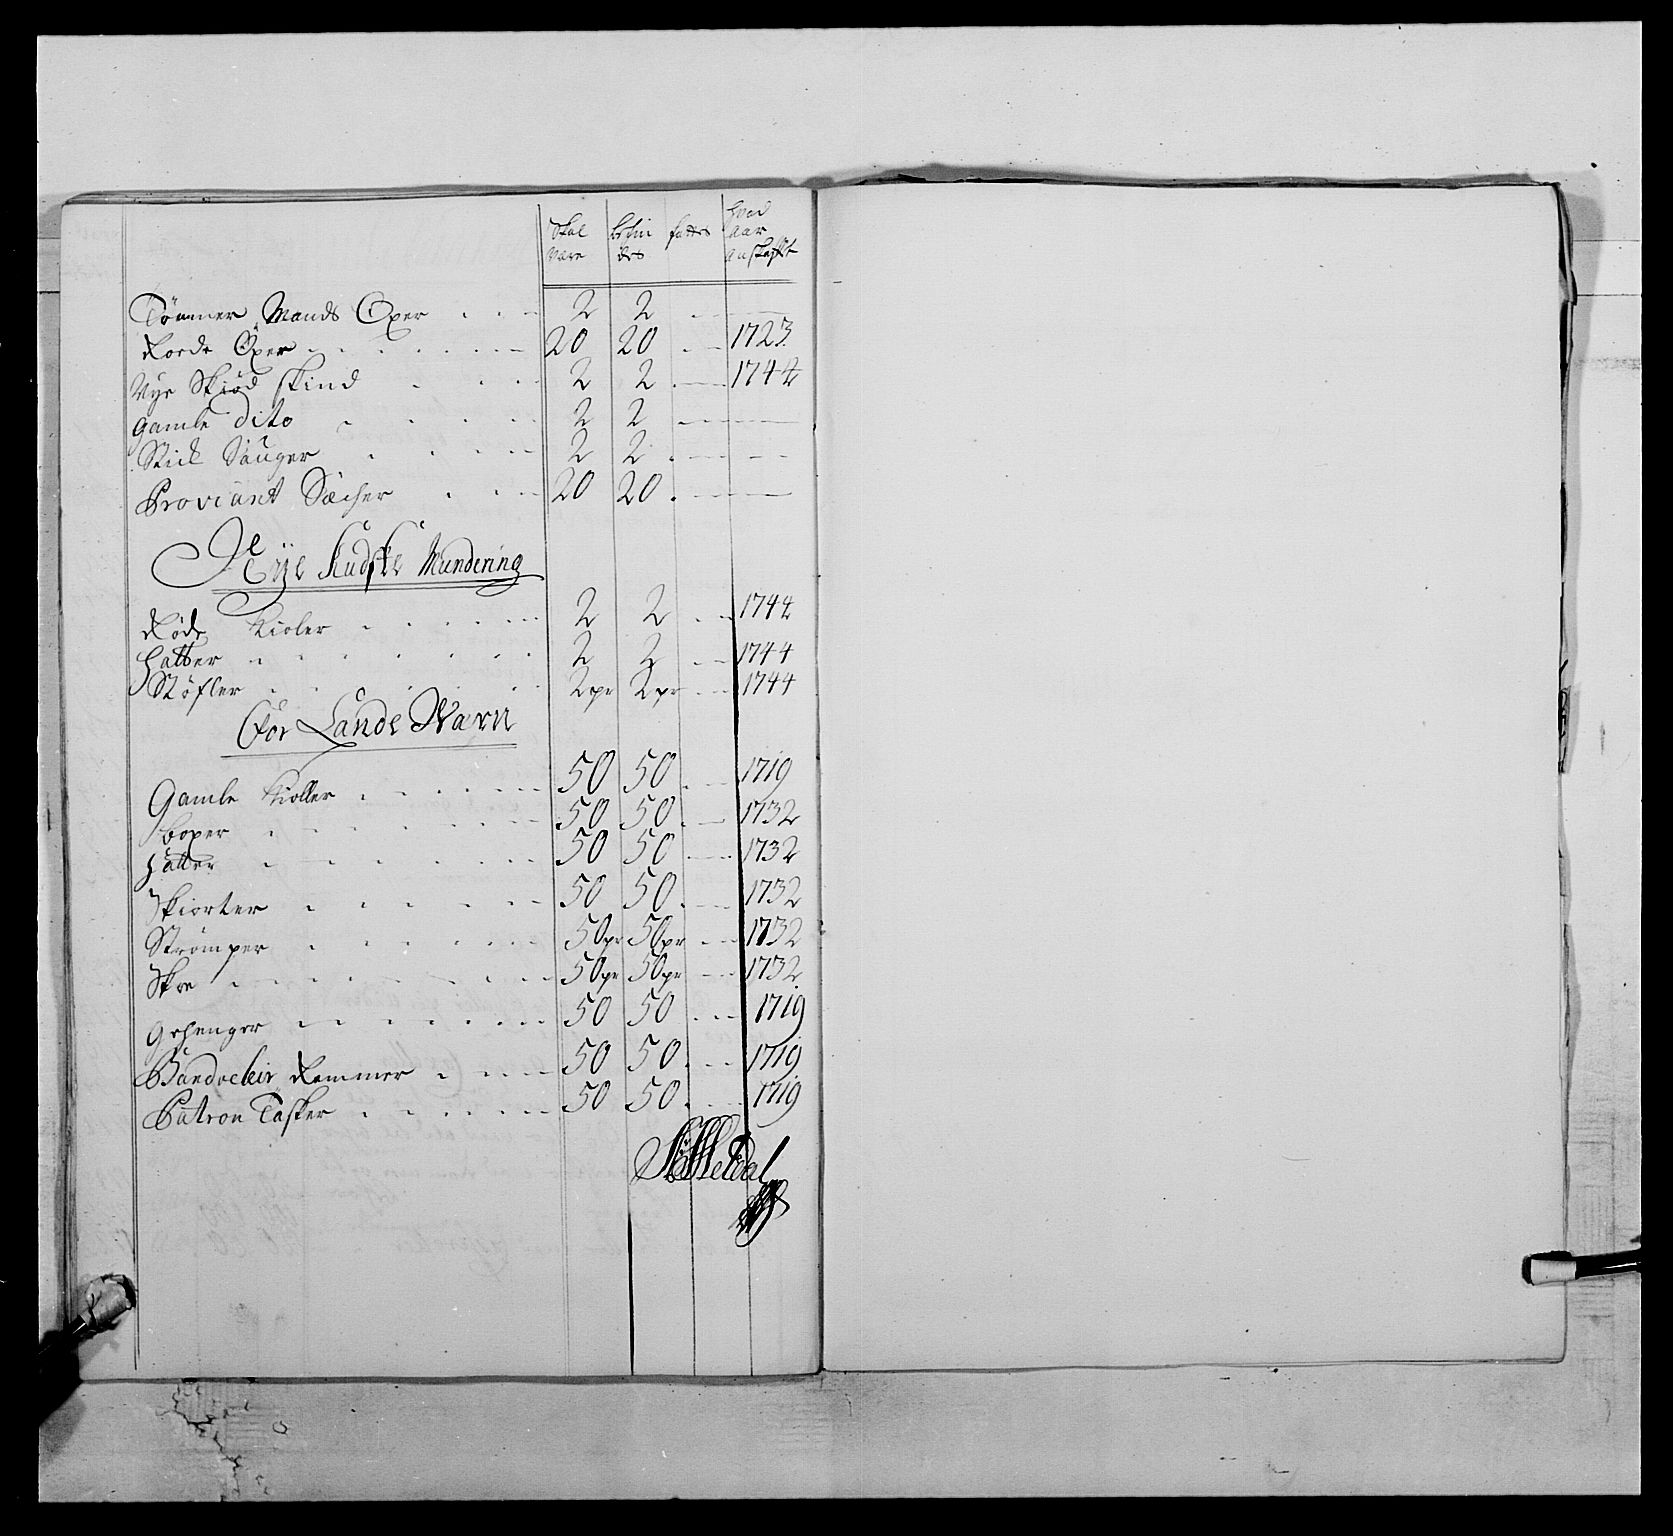 Skal være | befindes | fattes | Hvad Aar anskaffet
Tömmer Mands Öxer 2 2 — —
Korde Öxer 20 20 — 1723
Nye Skiød skind 2 2 — 1744
Gamle Dito 2 2 — —
Stick Sauger 2 2 — —
Proviant Sæcher 20 20 — —
Nye Kudske Mundering
Røde Kioler 2 2 — 1744
Hatter 2 2 — 1744
Støfler 2 pr 2 pr — 1744
For Lande Værn
Gamle Kioller 50 50 — 1719
boxer 50 50 — 1732
Hatter 50 50 — 1732
Skiorter 50 50 — 1732
Strømper 50 pr 50 pr — 1732
Skoe 50 pr 50 pr — 1732
Gehenger 50 50 — 1719
Bandeleir Remmer 50 50 — 1719
Patron Tasker 50 50 — 1719